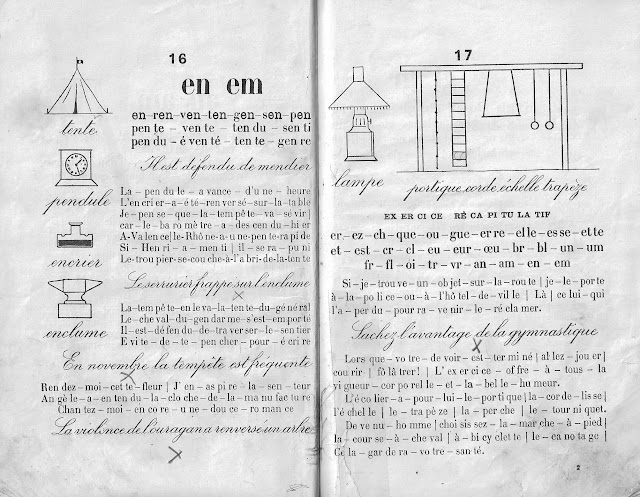 16
en em
en–ren–ven–ten–gen–sen–pen
pen te – ven te – ten du – sen ti
pen du – é ven té – ten te – gen re
tente
Il est défendu de mendier
pendule
La–pen du le–a vance–d'u ne–heure
L'en cri er–a–été–ren ver sé–sur–la–table
Je–pen se–que–la–tem pê te–va–se vir|
car–le–ba ro mè tre–a–des cen du–hi er
A–Va len ce|le-Rhô ne–a–u ne–pen te–ra pi de
Si–Hen ri–a–men ti | il–se ra–pu ni
Le–trou pier–se–cou che–à–l'a bri–de–la–ten te
encrier
Le serrurier frappe sur l'enclume
La–tem pê te–en le va–la–ten te–du–gé né ral
Le–che val–du–gen dar me–s'est–em por té
Il–est–dé fen du–de–tra ver ser–le–sen tier
E vi te–de–te–pen cher–pour–é cri re
enclume
En novembre la tempête est fréquente
Ren dez–moi–cet te–fleur | J'en–as pi re–la–sen–teur
An gè le–a–en ten du–la–clo che–de–la–ma nu fac tu re
Chan tez–moi–en co re–u ne–dou ce–ro man ce
La violence de l'ouragan a renversé un arbre
17
lampe
portique, corde, échelle, trapèze
EX ER CI CE RÉ CA PI TU LA TIF
er–ez–ch–que–ou–gue–er re–el le–es se–et te
et–est–er–cl–eu–eur–œu–br–bl–un–um
fr–fl–oi–tr–vr–an–am–en–em
Si–je–trou ve–un–ob jet–sur–la–rou te | je–le–por te
à–la–po li ce–ou–à–l'hô tel–de–vil le | Là | ce lui–qui
l'a–per du–pour ra–ve nir–le–ré cla mer
Sachez l'avantage de la gymnastique
Lors que–vo tre–de voir–est–ter mi né | al lez–jou er|
cou rir | fo lâ trer | L'ex er ci ce–of fre–à–tous–la
vi gueur–cor po rel le–et–la–bel le–hu meur.
L'é co lier–a–pour–lui–le–por ti que|la–cor de–lis se|
l'é chel le | le–tra pè ze | la–per che | le–tour ni quet.
De ve nu–hom me | choi sis sez–la–mar che–à–pied|
la–cour se–à–che val | à–bi cy clet te | le–ca no ta ge|
Ce la–gar de ra–vo tre–san té.
2